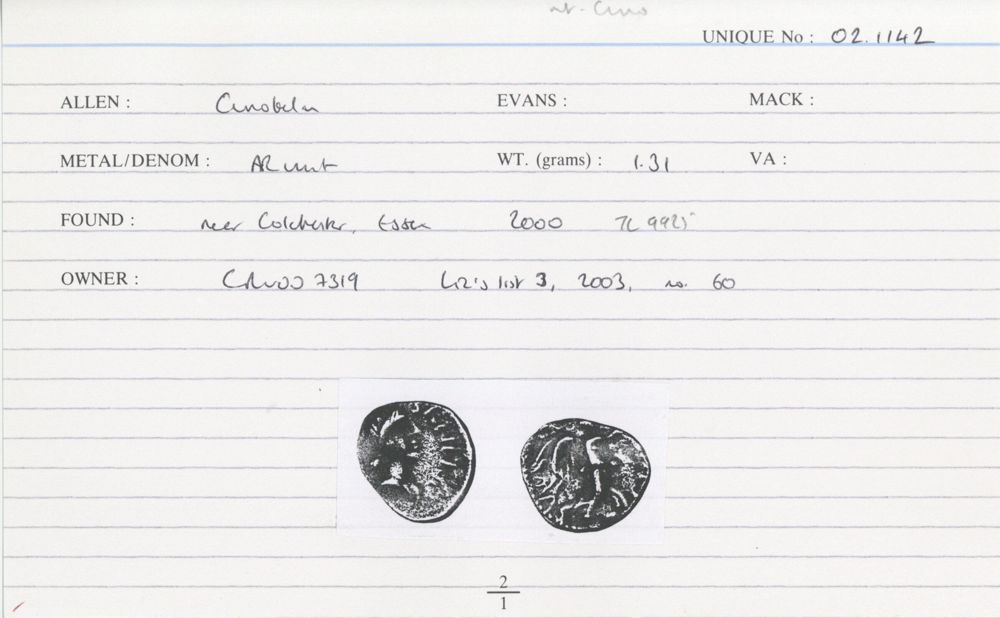 UNIQUE No : 02.1142
ALLEN : Cunobelin EVANS : MACK :
METAL/DENOM : AR unit WT. (grams) : 1.31 VA :
FOUND : near Colchester, Essex 2000 TL 9925
OWNER : 7319 Liz's list 3, 2003, no. 60
2
1